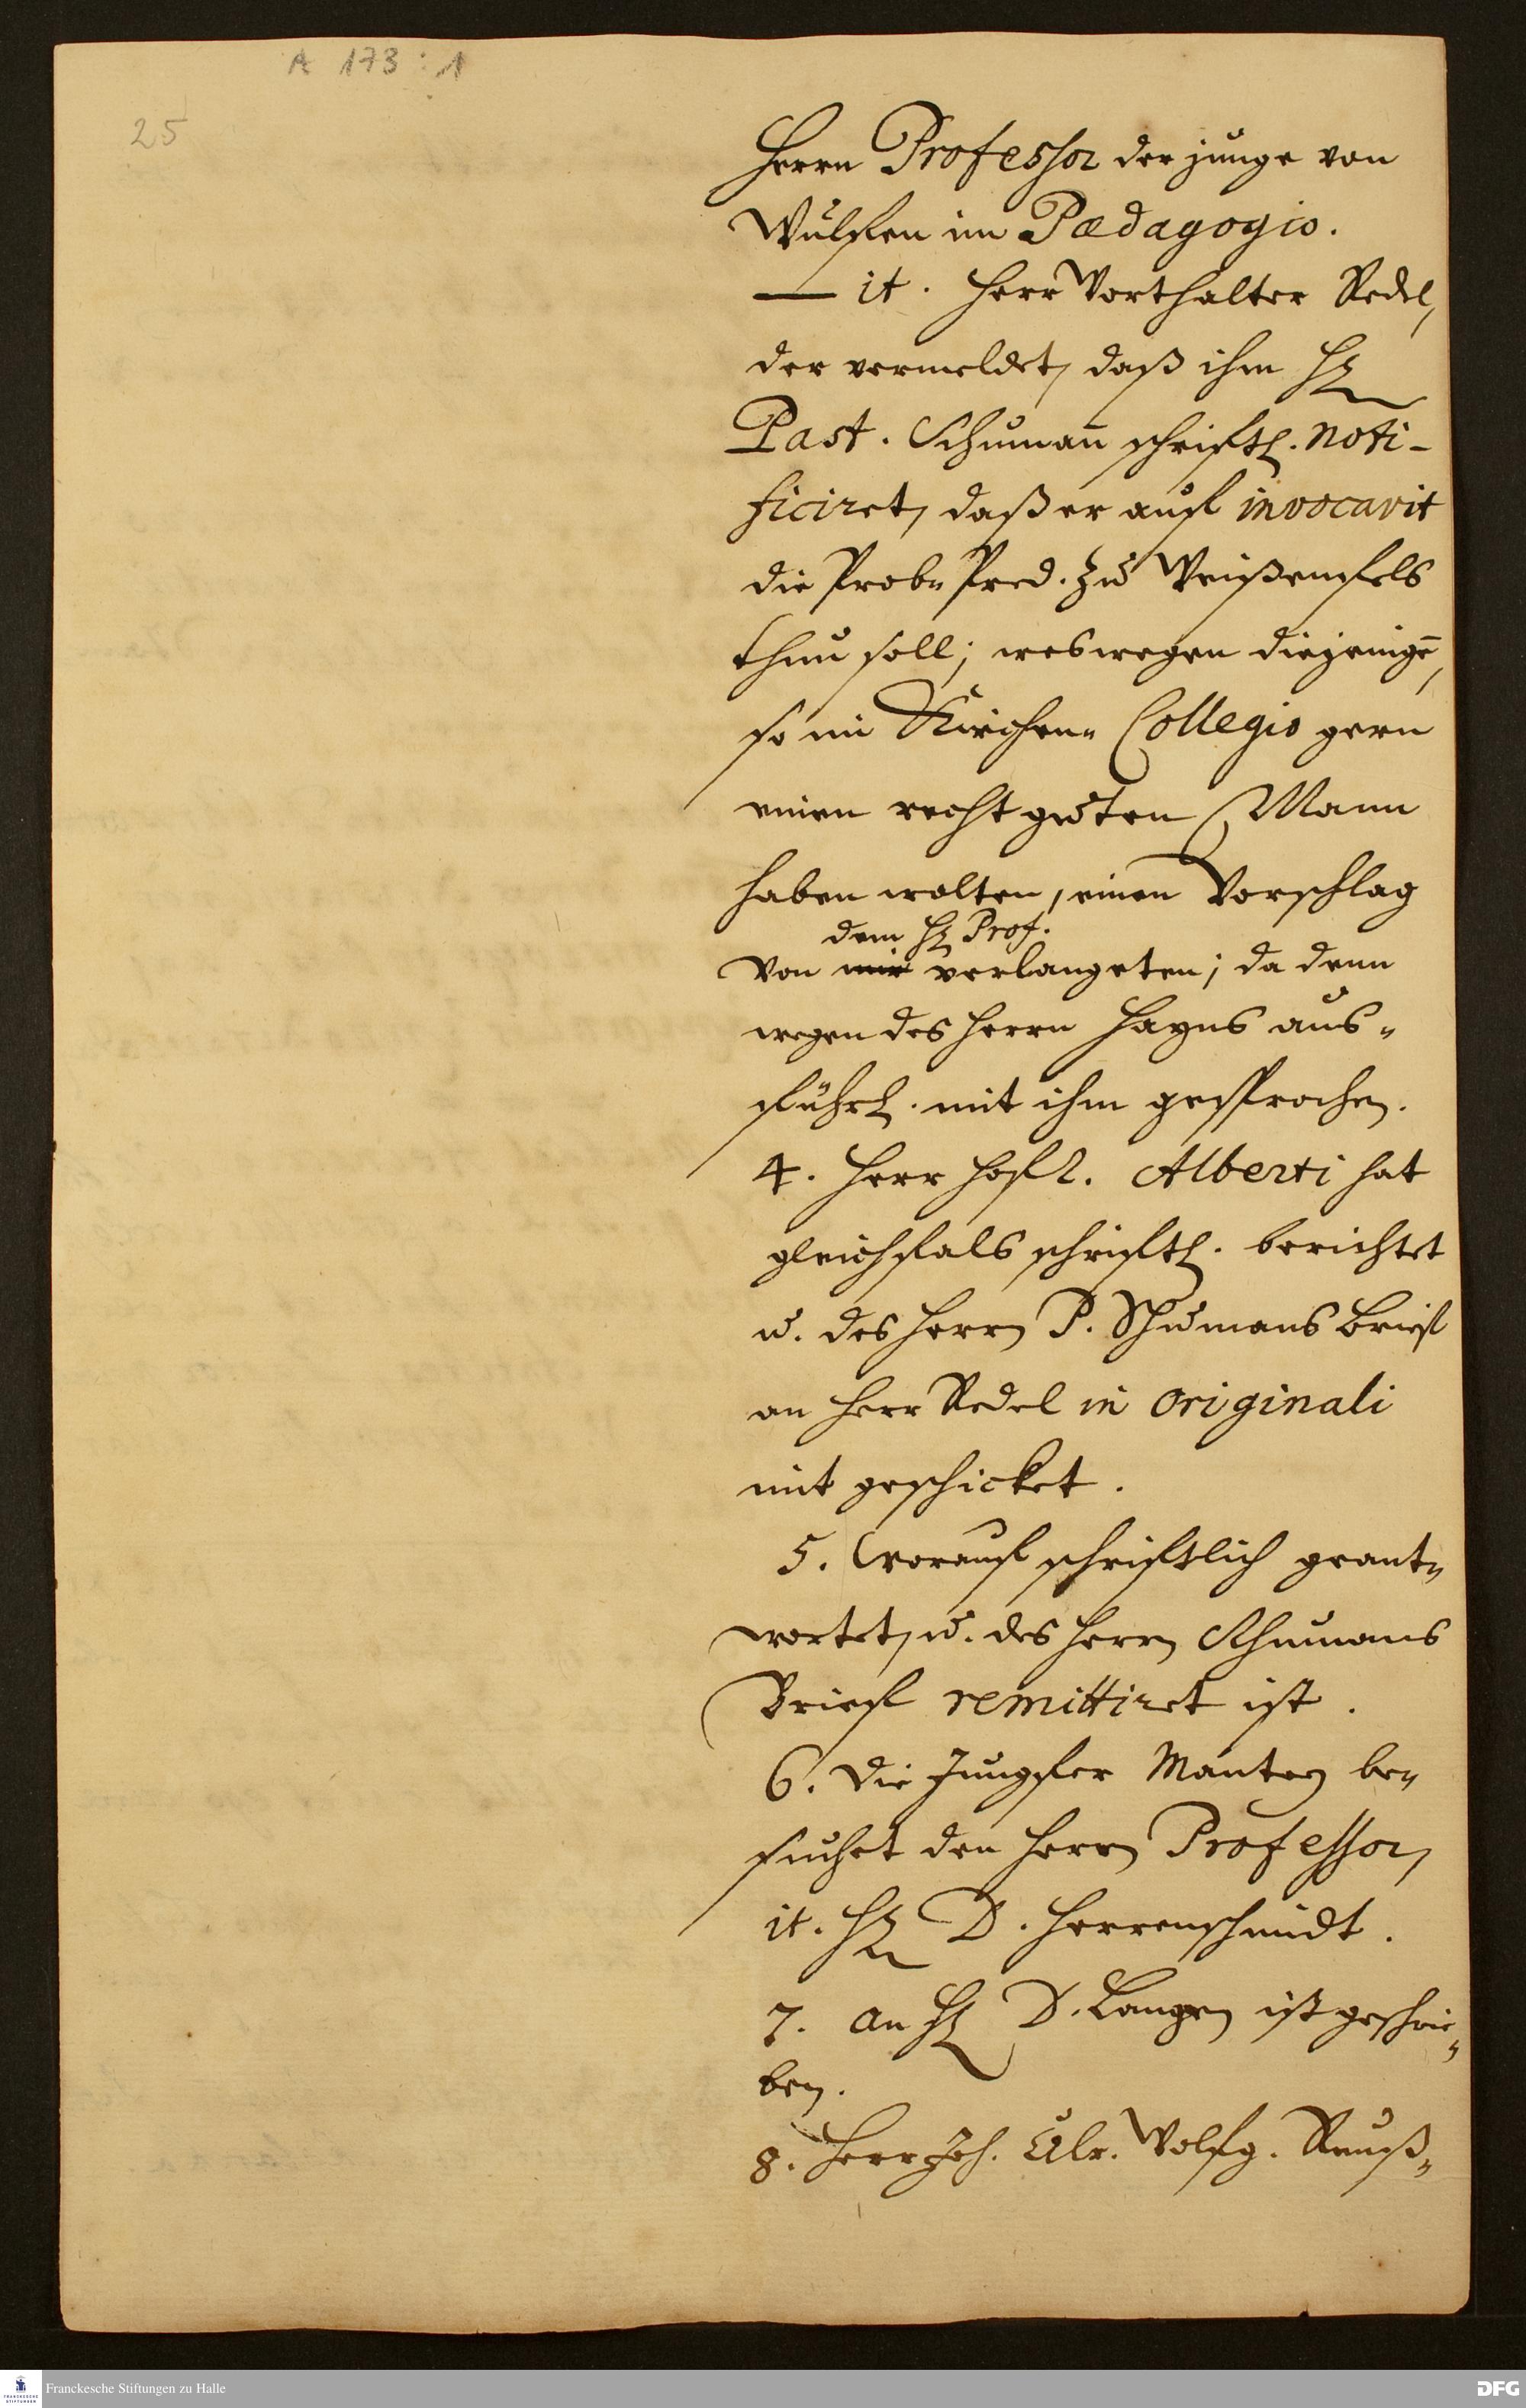 A 173 : 1
25
Herrn Professor der junge von
Wulffen im Pædagogio.
— it. Herr Vorsthalter Redel,
der vermeldet, daß ihm H.
Past. Schuman̄ schriftl. noti-
ficiret, daß er auf invocavit
die Prob-Pred. zu Weißenfels
thun soll; weswegen diejenigē,
so im Kirchen-Collegio gern
einen recht guten Mann
haben wolten, einen Vorschlag
dem H. Prof.
von mir verlangeten; da denn
wegen des Herrn Hayns aus-
führl. mit ihm gesprochen.
4. Herr Hofr. Alberti hat
gleichfals schriftl. berichtet
u. des Herrn P. Schumans Brief
an Herr Redel in originali
mit geschicket.
5. Worauf schriftlich geant-
wortet, u. des Herrn Schumans
Brief remittiret ist.
6. Die Jungfer Mantey be-
suchet den Herrn Professor,
it. H. D. Herrenschmidt.
7. an H. D. Langen ist geschrie-
ben.
8. Herr Joh. Ulr. Wolfg. Reuß-
Franckesche Stiftungen zu Halle
DFG